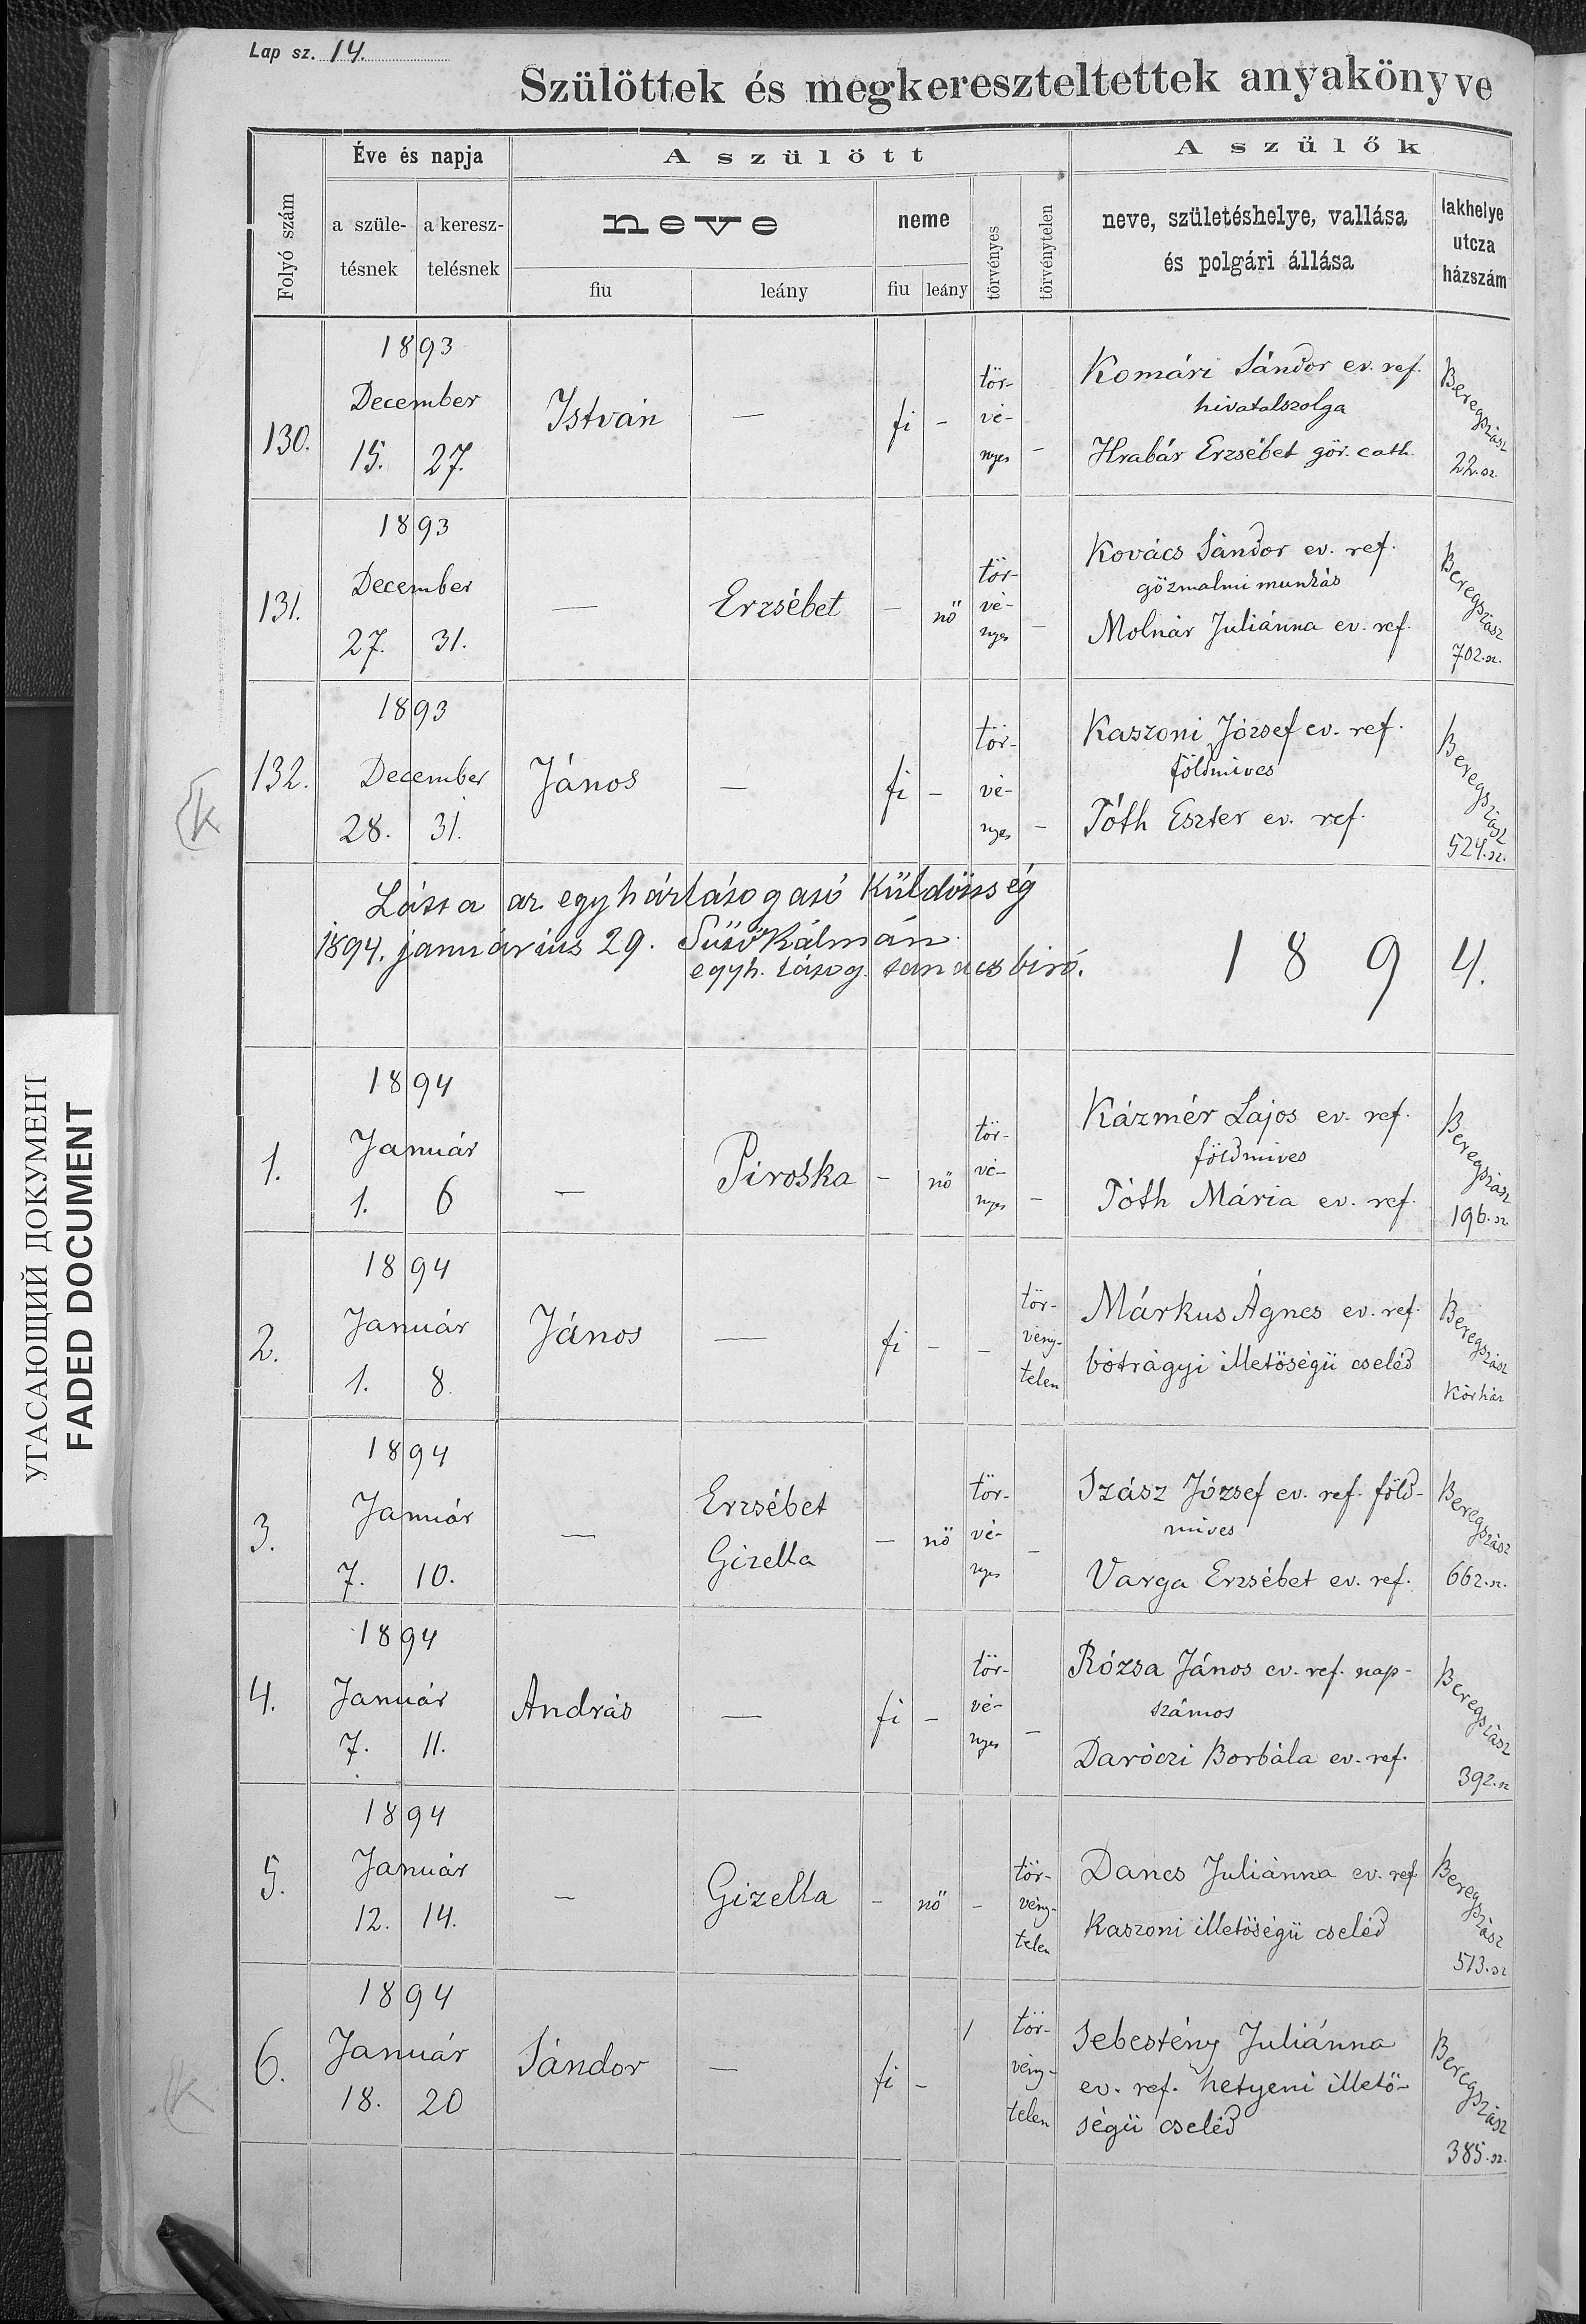 Lap sz. 14.
Szülöttek és megkereszteltettek anyakönyve
Folyó szám
Éve és napja
a szüle-
tésnek
a keresz-
telésnek
A szülött
neve
fiu
leány
neme
fiu
leány
törvényes
törvénytelen
A szülők
neve, születéshelye, vallása
és polgári állása
lakhelye
utcza
házszám
130.
1893
December
15. 27.
István
—
fi
-
tör-
vé-
nyes
-
Komári Sándor ev. ref.
hivatalszolga
Hrabár Erzsébet gör. cath.
Beregszász
22. sz.
131.
1893
December
27. 31.
—
Erzsébet
-
nő
tör-
vé-
nyes
-
Kovács Sándor ev. ref.
gőzmalmi munkás
Molnár Juliánna ev. ref.
Beregszász
702. sz.
k
132.
1893
December
28. 31.
János
—
fi
-
tör-
vé-
nyes
-
Kaszoni József ev. ref.
földmives
Tóth Eszter ev. ref.
Beregszász
524. sz.
Látta az egyházlátogató Küldösség
1894. január ius 29. Sütő Kálmán
egyh. látog. tanácsbiró.
1894.
1.
1894
Január
1. 6
—
Piroska
-
nő
tör-
vé-
nyes
-
Kázmér Lajos ev. ref.
földmives
Tóth Mária ev. ref.
Beregszász
196. sz.
2.
1894
Január
1. 8.
János
—
fi
-
-
tör-
vény-
telen
Márkus Ágnes ev. ref.
bótrágyi illetőségü cseléd
Beregszász
Kórház
3.
1894
Január
7. 10.
—
Erzsébet
Gizella
-
nő
tör-
vé-
nyes
-
Szász József ev. ref. föld-
mives
Varga Erzsébet ev. ref.
Beregszász
662. sz.
4.
1894
Január
7. 11.
András
—
fi
-
tör-
vé-
nyes
-
Rózsa János ev. ref. nap-
számos
Daróczi Borbála ev. ref.
Beregszász
392. sz
5.
1894
Január
12. 14.
—
Gizella
-
nő
-
tör-
vény-
telen
Dancs Juliánna ev. ref
Kaszoni illetőségü cseléd
Beregszász
513. sz
k
6.
1894
Január
18. 20
Sándor
—
fi
-
tör-
vény-
telen
Sebestény Juliánna
ev. ref. hetyeni illető-
ségü cseléd
Beregszász
385. sz.
УГАСАЮЩИЙ ДОКУМЕНТ
FADED DOCUMENT